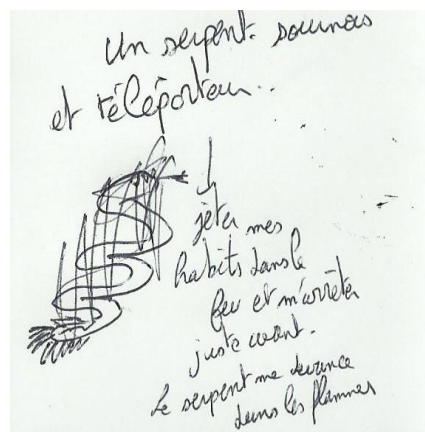 Un serpent sournois
et téléporteur..
jeter mes
habits dans le
feu et m'arrêter
juste avant.
Le serpent me devance
dans les flammes